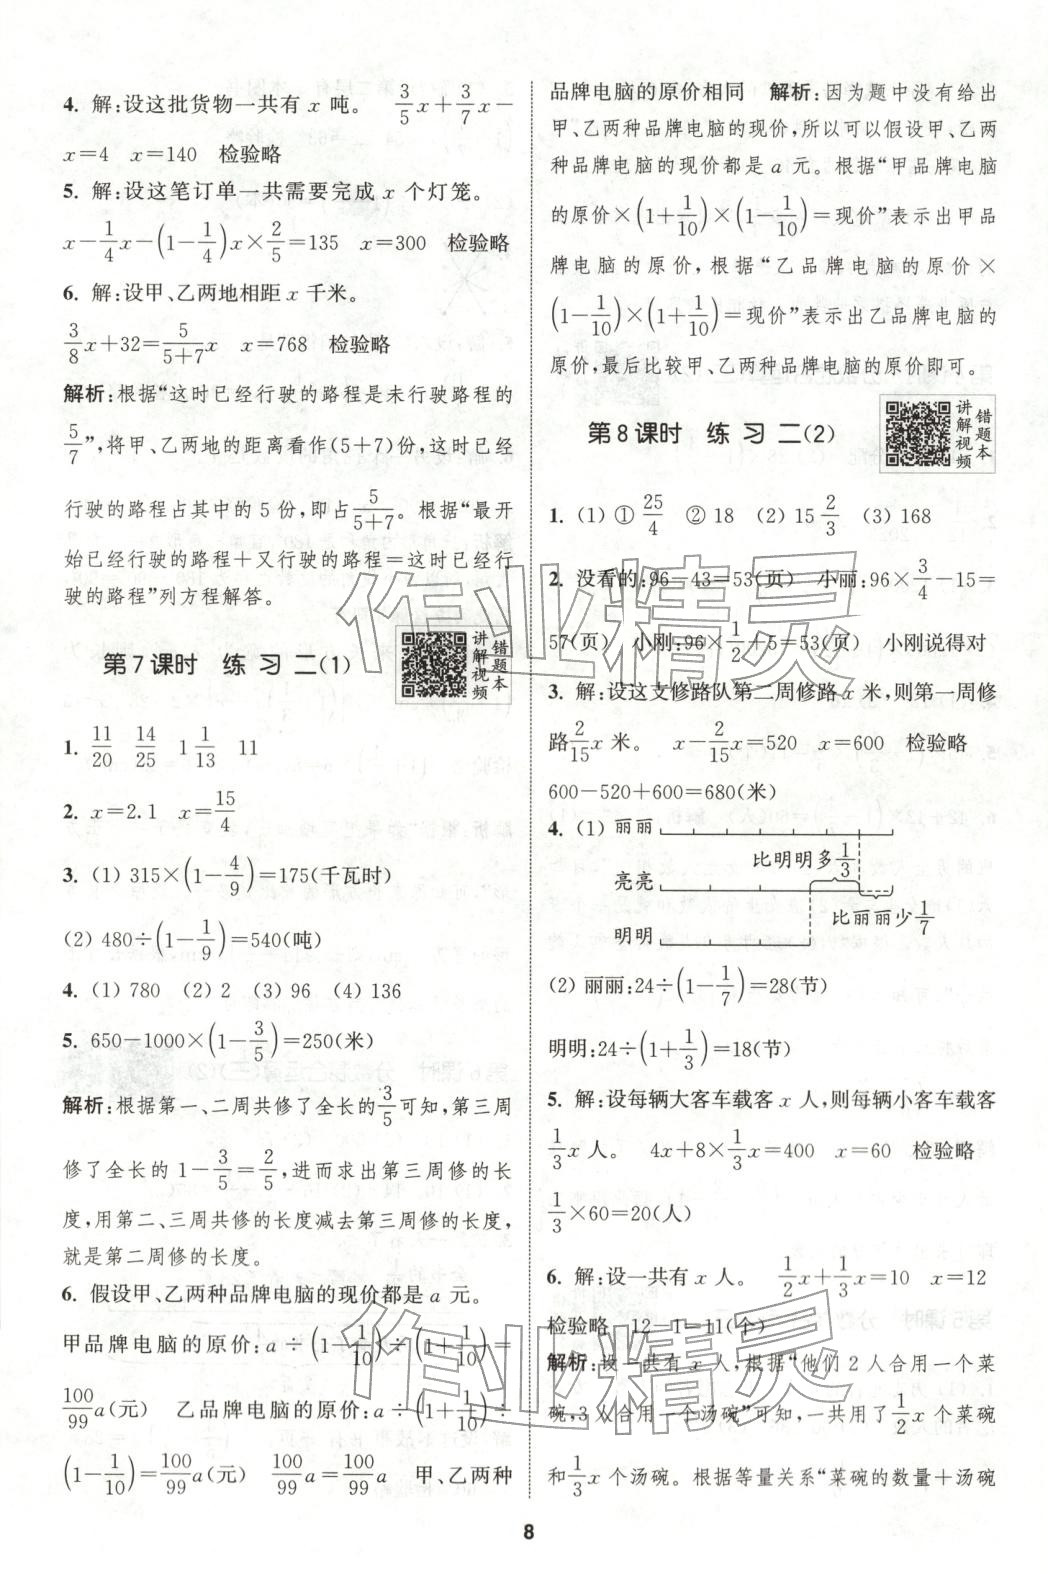 4. 解:设这批货物一共有 x 吨。 3/5x+3/7x−
x=4 x=140 检验略
5. 解:设这笔订单一共需要完成 x 个灯笼。
x−1/4x−(1−1/4)x×2/5=135 x=300 检验略
6. 解:设甲、乙两地相距 x 千米。
3/8x+32=5/(5+7)x x=768 检验略
解析:根据“这时已经行驶的路程是未行驶路程的
5/7”,将甲、乙两地的距离看作(5+7)份,这时已经
行驶的路程占其中的 5 份,即占5/(5+7)。根据“最开
始已经行驶的路程+又行驶的路程=这时已经行
驶的路程”列方程解答。
第7课时 练习二(1)
讲解视频
错题本
1. 11/20 14/25 1 1/13 11
2. x=2.1 x=15/4
3. (1) 315×(1−4/9)=175(千瓦时)
(2) 480÷(1−1/9)=540(吨)
4. (1) 780 (2) 2 (3) 96 (4) 136
5. 650−1000×(1−3/5)=250(米)
解析:根据第一、二周共修了全长的3/5可知,第三周
修了全长的 1−3/5=2/5,进而求出第三周修的长
度,用第二、三周共修的长度减去第三周修的长度,
就是第二周修的长度。
6. 假设甲、乙两种品牌电脑的现价都是 a 元。
甲品牌电脑的原价:a÷(1−1/10)÷(1+1/10)=
100/99a(元) 乙品牌电脑的原价:a÷(1+1/10)÷
(1−1/10)=100/99a(元) 100/99a=100/99a 甲、乙两种
品牌电脑的原价相同 解析:因为题中没有给出
甲、乙两种品牌电脑的现价,所以可以假设甲、乙两
种品牌电脑的现价都是 a 元。根据“甲品牌电脑
的原价×(1+1/10)×(1−1/10)=现价”表示出甲品
牌电脑的原价,根据“乙品牌电脑的原价×
(1−1/10)×(1+1/10)=现价”表示出乙品牌电脑的
原价,最后比较甲、乙两种品牌电脑的原价即可。
第8课时 练习二(2)
讲解视频
错题本
1. (1) ① 25/4 ② 18 (2) 15 2/3 (3) 168
2. 没看的:96−43=53(页) 小丽:96×3/4−15=
57(页) 小刚:96×1/2+5=53(页) 小刚说得对
3. 解:设这支修路队第二周修路 x 米,则第一周修
路2/15x 米。 x−2/15x=520 x=600 检验略
600−520+600=680(米)
4. (1) 丽丽
比明明多1/3
亮亮
比丽丽少1/7
明明
(2) 丽丽:24÷(1−1/7)=28(节)
明明:24÷(1+1/3)=18(节)
5. 解:设每辆大客车载客 x 人,则每辆小客车载客
1/3x 人。 4x+8×1/3x=400 x=60 检验略
1/3×60=20(人)
6. 解:设一共有 x 人。 1/2x+1/3x=10 x=12
检验略 12−1=11(个)
解析:设一共有 x 人,根据“他们 2 人合用一个菜
碗,3 人合用一个汤碗”可知,一共用了1/2x 个菜碗
和1/3x 个汤碗。根据等量关系“菜碗的数量+汤碗
8
作业精灵
作业精灵